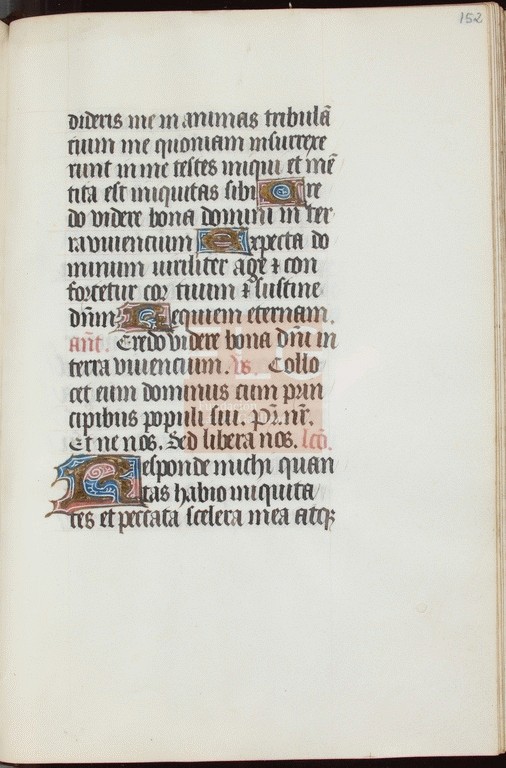 152
dideris me in animas tribulā
cium me quoniam insurrexe
runt in me testes iniqui et mē
tita est iniquitas sibi Cre
do videre bona domini in ter
ra viuencium Expecta do
minum viriliter age ⁊ con
fortetur cor tuum ⁊ sustine
dn̄m Requiem eternam.
ant̄. Credo videre bona dn̄i in
terra viuencium. vs. Collo
cet eum dominus cum prin
cipibus populi sui. Pr̄. nr̄.
Et ne nos. Sed libera nos. lc̄o.
Responde michi quan
tas habio iniquita
tes et peccata scelera mea atqꝫ